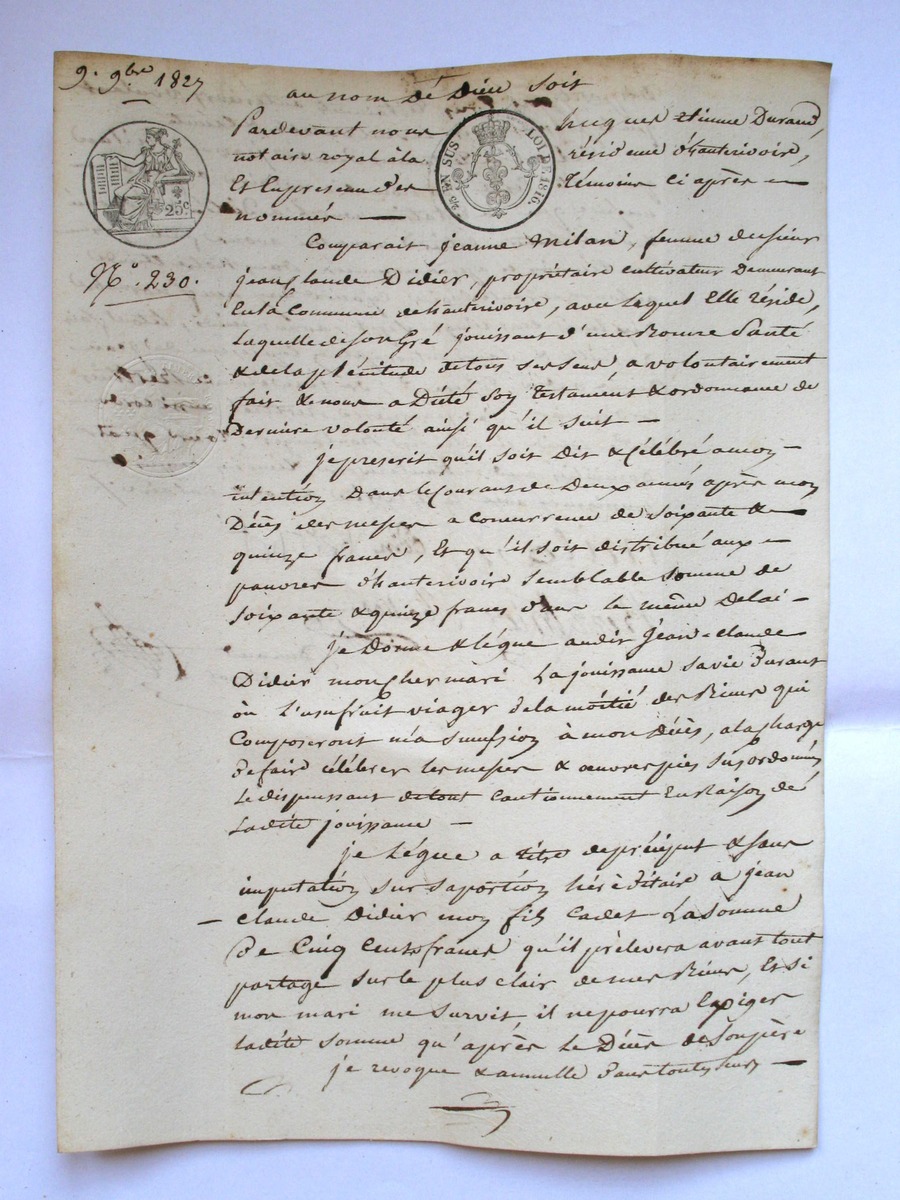 9. 9bre 1827
au nom de Dieu soit
Pardevant nous hugues etienne Durand,
notaire royal à la résidence d'hauterivoire,
Et En presence des témoins ci après —
nommés —
25c
¼ EN SUS LOI DE 1816.
N° 230.
Comparait jeanne Milan, femme de sieur
jean Claude Didier, propriétaire cultivateur Demeurant
En la Commune d'hauterivoire, avec lequel Elle réside,
Laquelle de son Gré jouissant d'une Bonne Santé
& de la plénitude de tous ses sens, a volontairement
fait & nous a Dicté Son testament & ordonnance de
Derniere volonté ainsi qu'il suit —
je prescrit qu'il soit Dit & Célébré a mon —
intention Dans le Courant de Deux années après mon
Décès des messes a Concurrence de soixante &
quinze francs, Et qu'il soit distribué aux —
pauvres d'hauterivoire semblable somme de
soixante & quinze francs dans le même Delai —
je Donne & lègue audit Jean-Claude
Didier mon Cher mari La jouissance sa vie Durant
où L'usufruit viager de la moitié des Biens qui
Composeront ma succession à mon Décès, a la charge
de faire célébrer les messes & œuvres pies susordonnés
Le dispensant de tout Cautionnement En Raison de
Ladite jouissance —
je Légue a titre de préciput & sans
imputation sur sa portion héréditaire a jean
— Claude Didier mon fils Cadet La somme
de Cinq Cents francs qu'il prèlevera avant tout
partage sur le plus clair de mes Biens, Et si
mon mari me survit il ne pourra Exiger
ladite somme qu'après Le Décès de son père
je revoque & annulle dans tout leurs —